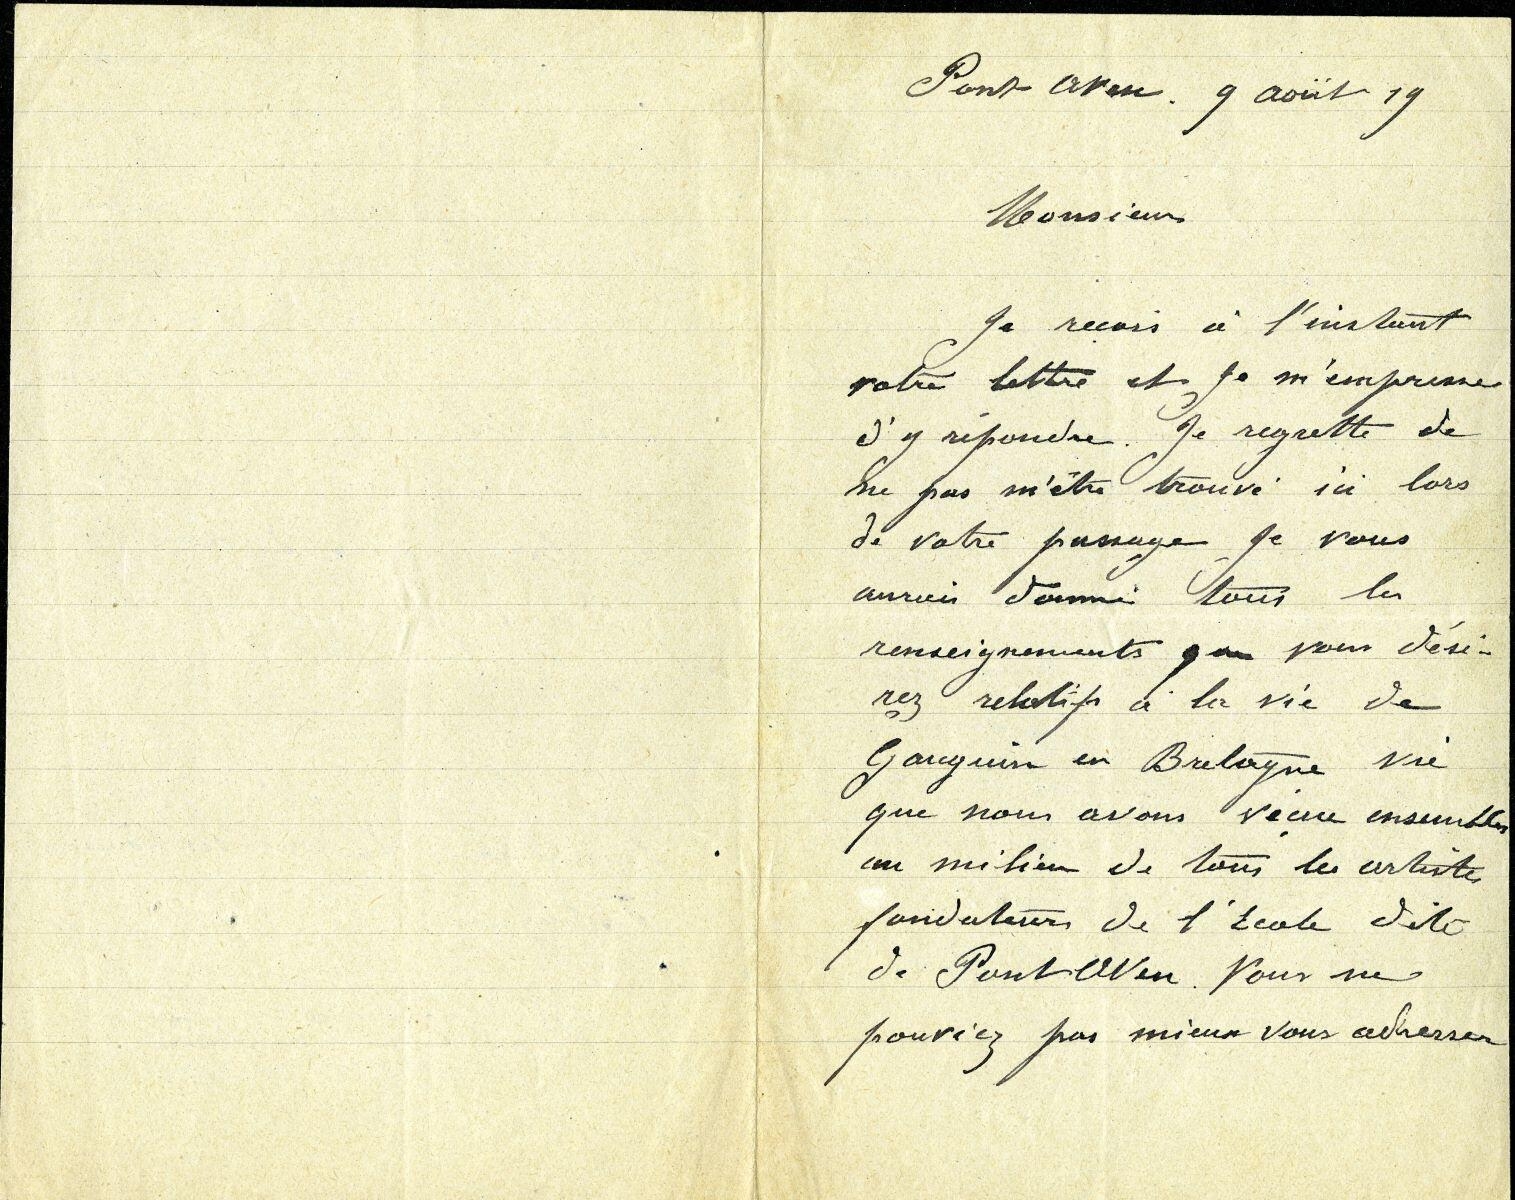 Pont Aven. 9 août 19
Monsieur
Je reçois à l'instant
votre lettre et je m'empresse
d'y répondre. Je regrette de
ne pas m'être trouvé ici lors
de votre passage je vous
aurais donné tous les
renseignements que vous dési-
rez relatifs à la vie de
Gauguin en Bretagne vie
que nous avons vécue ensembles
au milieu de tous les artistes
fondateurs de l'École dite
de Pont Aven. Vous ne
pouviez pas mieux vous adresser